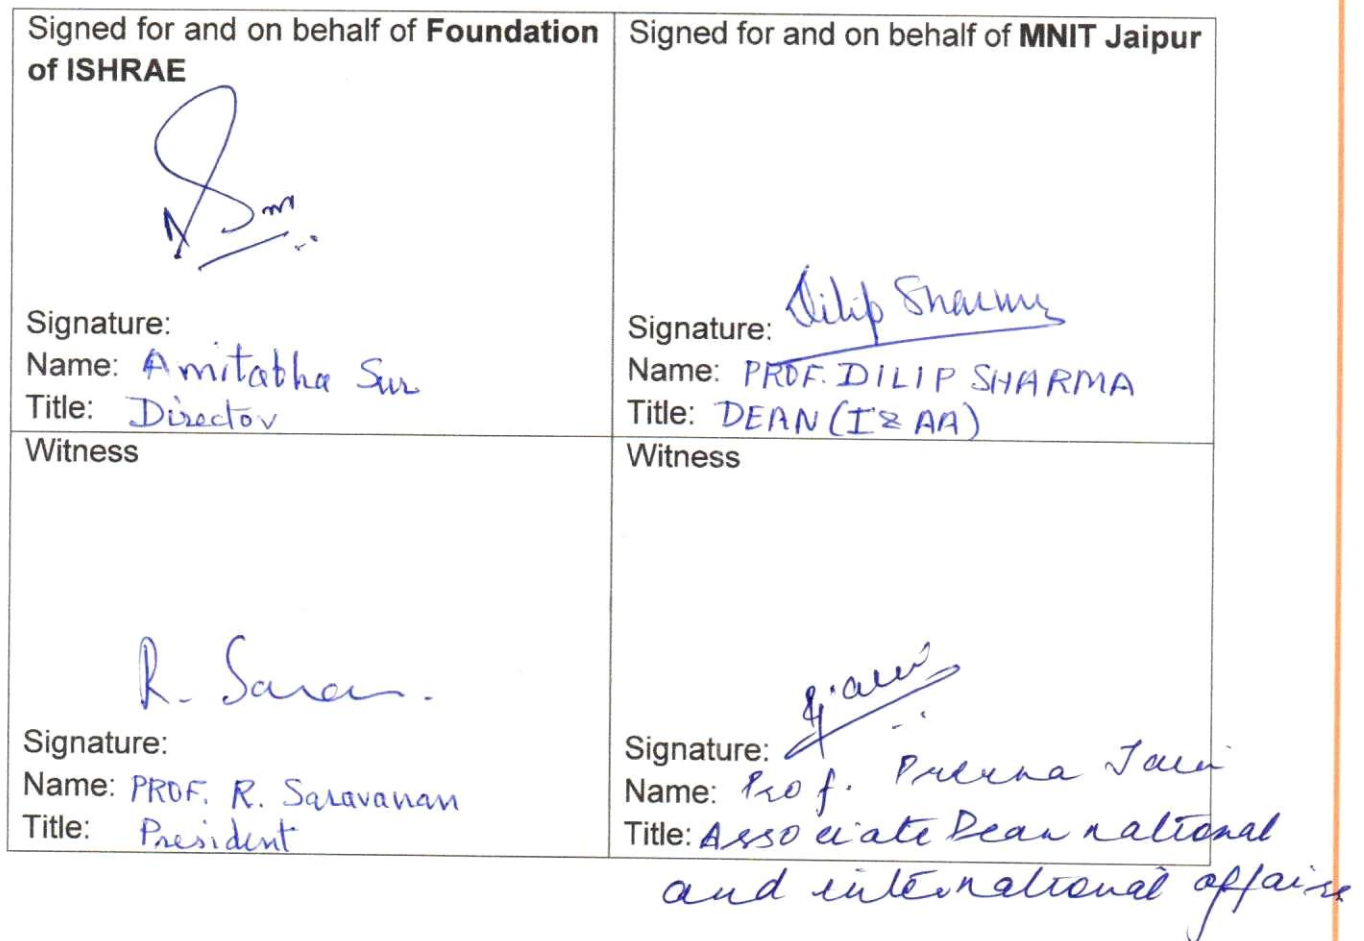 Signed for and on behalf of Foundation
of ISHRAE
Signature:
Name: Amitabha Sur
Title: Director
Signed for and on behalf of MNIT Jaipur
Signature: Dilip Sharma
Name: PROF. DILIP SHARMA
Title: DEAN (I & AA)
Witness
R. Saravan.
Signature:
Name: PROF. R. Saravanan
Title: President
Witness
Signature:
Name: Prof. Prerna Jain
Title: Associate Dean national
and international affairs